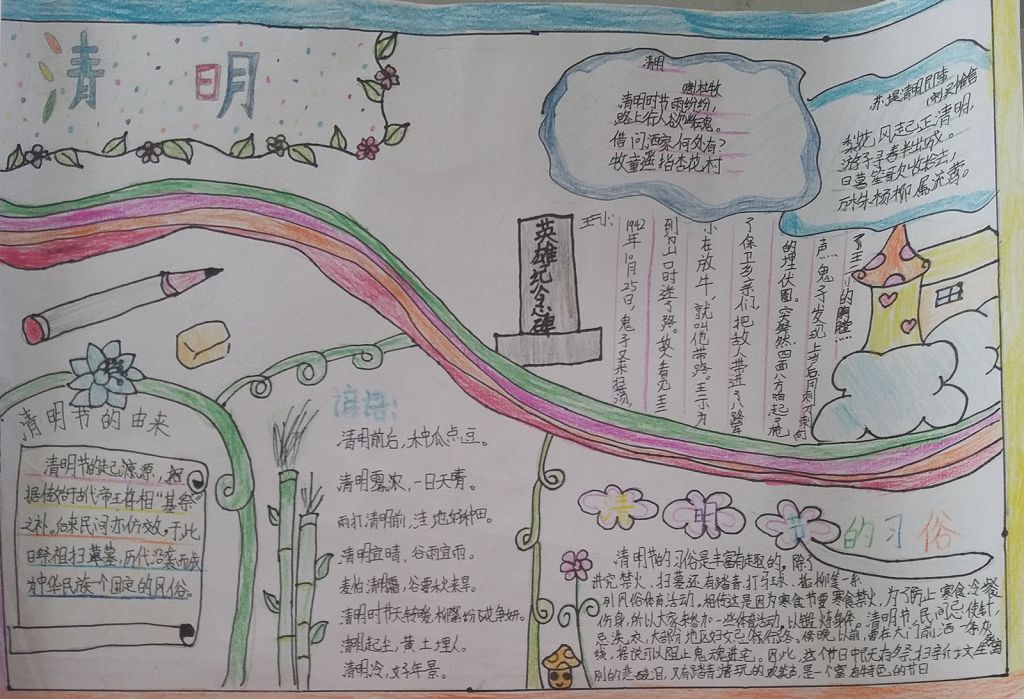 清明
清明
唐杜牧
清明时节雨纷纷,
路上行人欲断魂。
借问酒家何处有?
牧童遥指杏花村
苏堤清明即事
梨花风起正清明,
游子寻春半出城。
日暮笙歌收拾去,
万株杨柳属流莺。
英雄纪念碑
王小:
1942年10月25日,鬼子又来扫荡,
到山口时迷了路。敌人看见王
小在放牛,就叫他带路。王小为
了保卫乡亲们,把敌人带进了八路军
的埋伏圈。突然,四面八方响起了枪
声,鬼子发现上当后用刺刀刺向
了王小的胸膛
清明节的由来
清明节的起源,据
据传始于古代帝王将相“墓祭”
之礼。后来民间亦仿效,于此
日祭祖扫墓,历代沿袭而成
为中华民族一个固定的风俗。
谚语:
清明前后,种瓜点豆。
清明雾浓,一日天晴。
雨打清明前,洼地好种田。
清明宜晴,谷雨宜雨。
麦怕清明霜,谷要秋来旱。
清明时节天转暖,柳絮纷飞花争妍。
清明起尘,黄土埋人。
清明冷,好年景。
清明节的习俗
清明节的习俗是丰富有趣的,除了
讲究禁火、扫墓还有踏青、打马球、插柳等一系
列风俗体育活动。相传这是因为寒食节要寒食禁火,为了防止寒食冷餐
伤身,所以大家来参加一些体育活动,以锻炼身体。清明节,民间忌使针,
忌洗衣,大部分地区妇女忌行路。傍晚以前,要在大门前洒一条灰
线,据说可以阻止鬼魂进宅。因此,这个节日中既有祭扫新坟生离死
别的悲酸泪,又有踏青游玩的欢笑声,是一个富有特色的节日